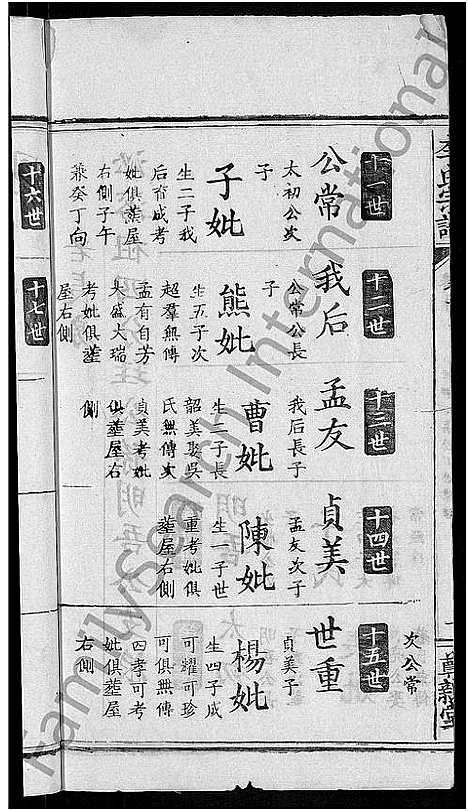 李氏宗譜
尊新堂
次公常
十一世
公常
太初公次
子
子妣
生二子我
后育成考
妣俱葬屋
右側子午
兼癸丁向
十二世
我后
公常公長
子
熊妣
生五子次
超羣無傳
孟有自芳
大盛大瑞
考妣俱葬
屋右側
十三世
孟友
我后長子
曹妣
生二子長
韶美娶吳
氏無傳次
貞美考妣
俱葬屋右
側
十四世
貞美
孟友次子
陳妣
生一子世
重考妣俱
葬屋右側
十五世
世重
貞美子
楊妣
生四子成
可耀可珍
可俱無傳
四孝可考
妣俱葬屋
右側
十六世
十七世
FamilySearch International